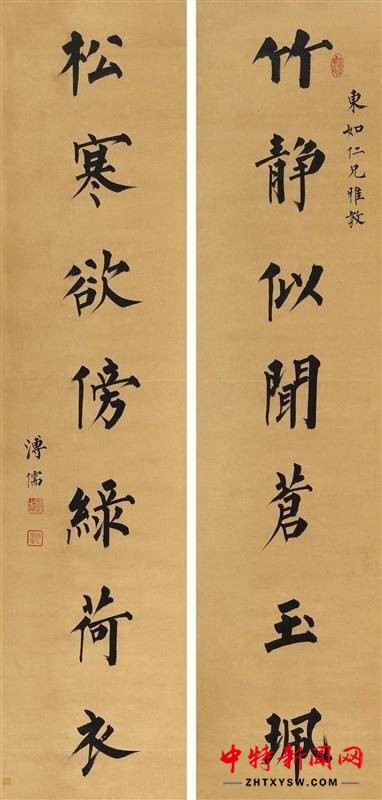 竹静似聞蒼玉珮
東如仁兄雅教
松寒欲傍緑荷衣
溥儒
中特新闻网
ZHTXYSW.COM